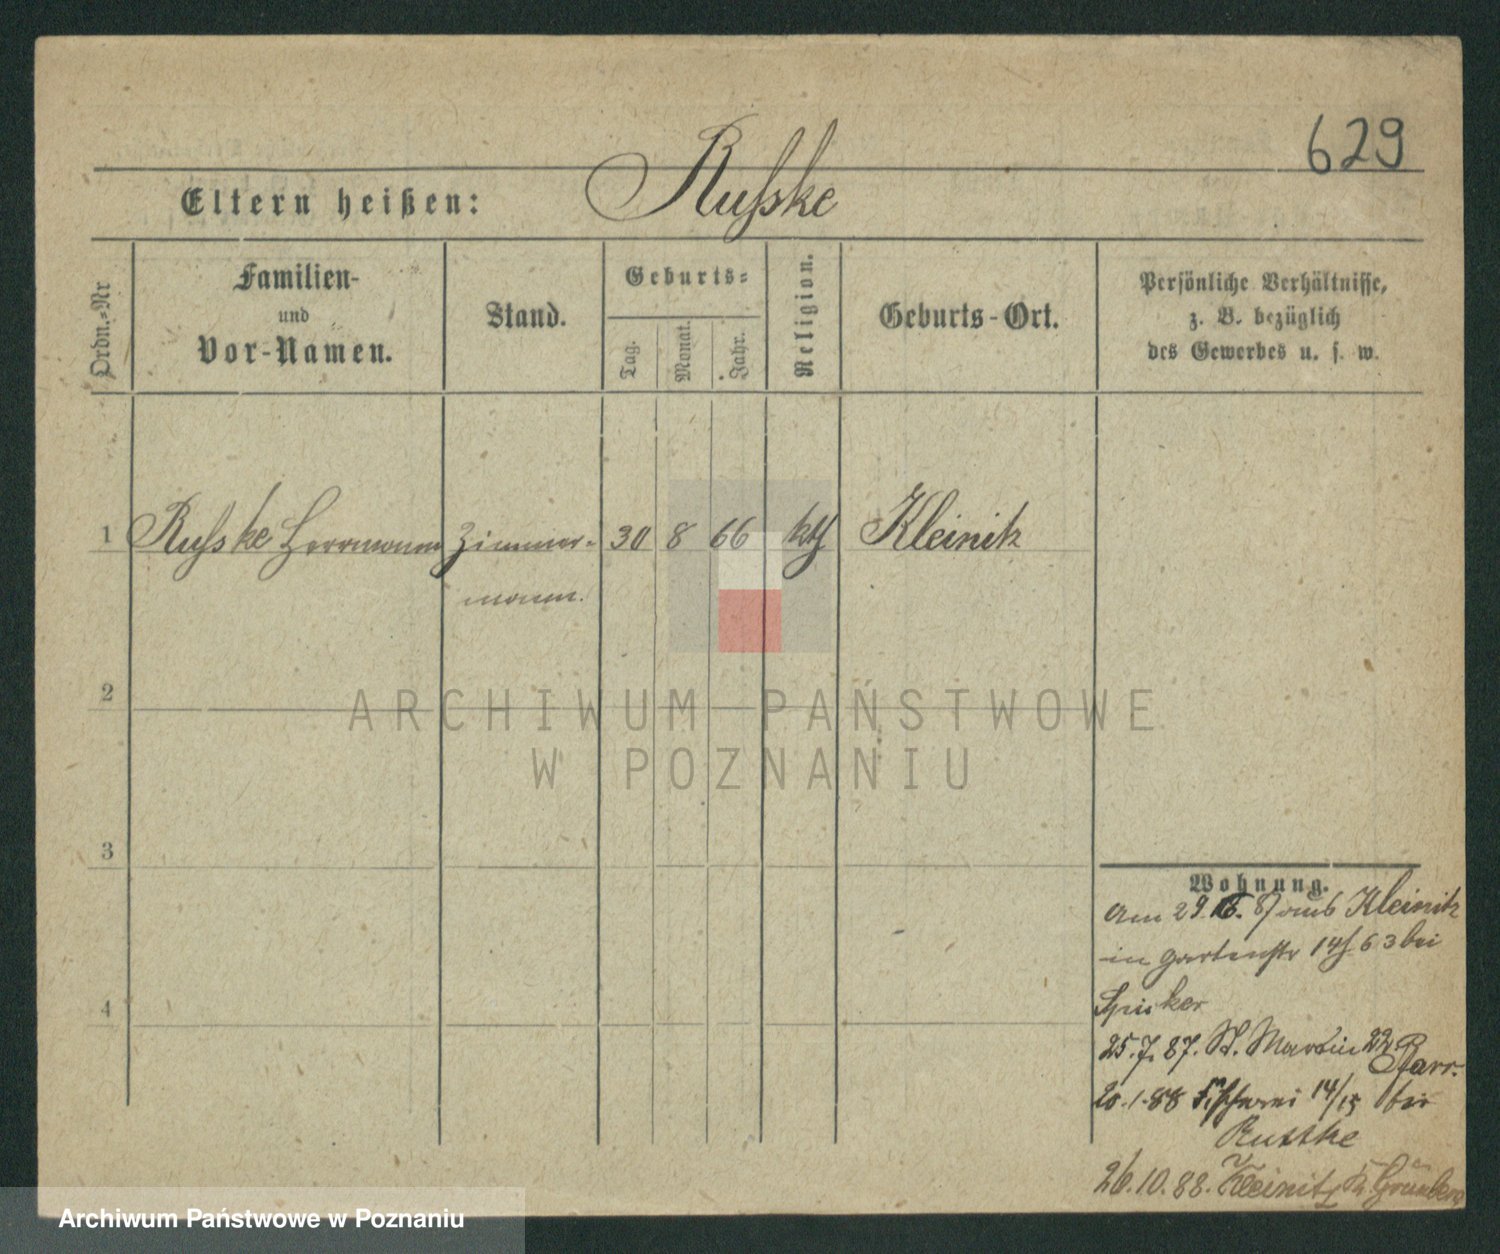 629
Eltern heißen: Rußke
Ordn.-Nr
Familien-
und
Vor-Namen.
Stand.
Geburts-
Tag.
Monat.
Jahr.
Religion.
Geburts-Ort.
Persönliche Verhältnisse,
z. B. bezüglich
des Gewerbes u. s. w.
1 Rußke Herrmann Zimmer- 30 8 66 kth Kleinitz
mann.
2
3
4
Wohnung.
Am 29. 87 aus Kleinitz
in Gartenstr 14 bei
Spieker
25.7.87. St. Martin 22 Pfarr.
20.1.88 Fischerei 14/15 bei
Ruttke
26.10.88. Kleinitz Kr. Grünberg
ARCHIWUM PAŃSTWOWE
W POZNANIU
Archiwum Państwowe w Poznaniu